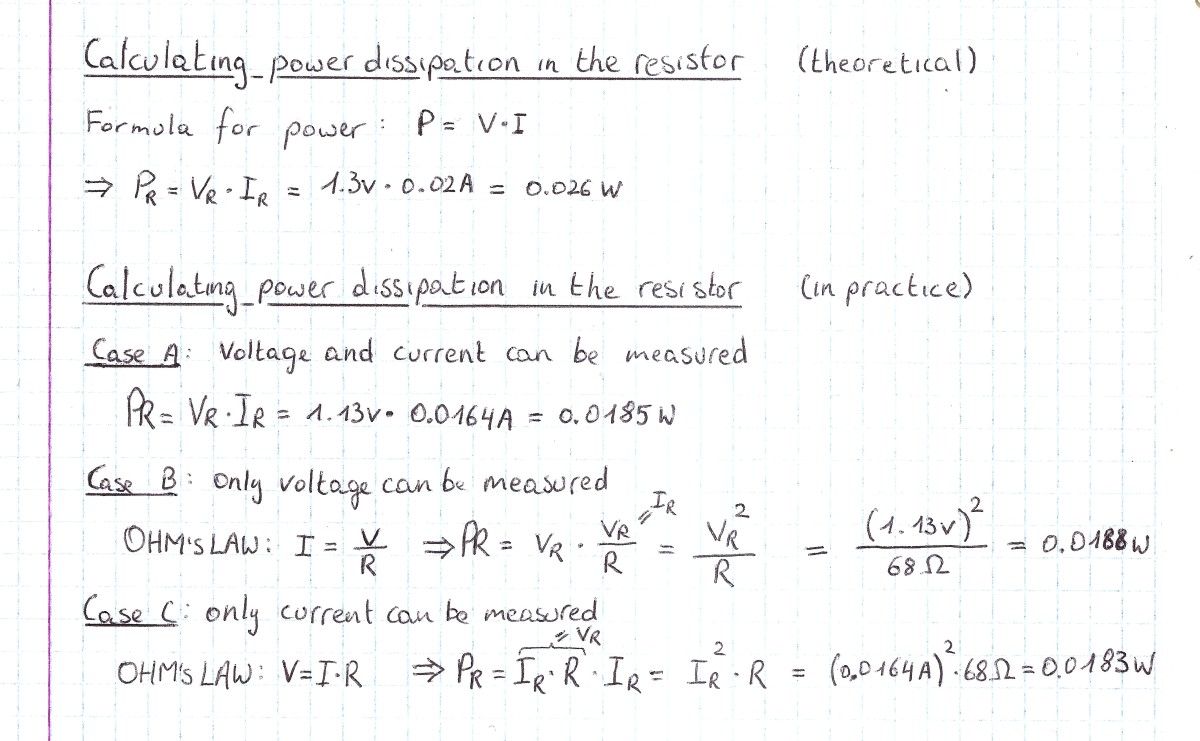 Calculating power dissipation in the resistor (theoretical)
Formula for power: P = V·I
⇒ PR = VR · IR = 1.3v · 0.02A = 0.026 W
Calculating power dissipation in the resistor (in practice)
Case A: Voltage and current can be measured
PR = VR · IR = 1.13v · 0.0164A = 0.0185 W
Case B: only voltage can be measured
OHM's LAW: I = V/R ⇒ PR = VR · VR/R (= IR) = VR²/R = (1.13v)²/68Ω = 0.0188W
Case C: only current can be measured
OHM's LAW: V=I·R ⇒ PR = IR·R (= VR) · IR = IR² · R = (0,0164A)²·68Ω = 0.0183W